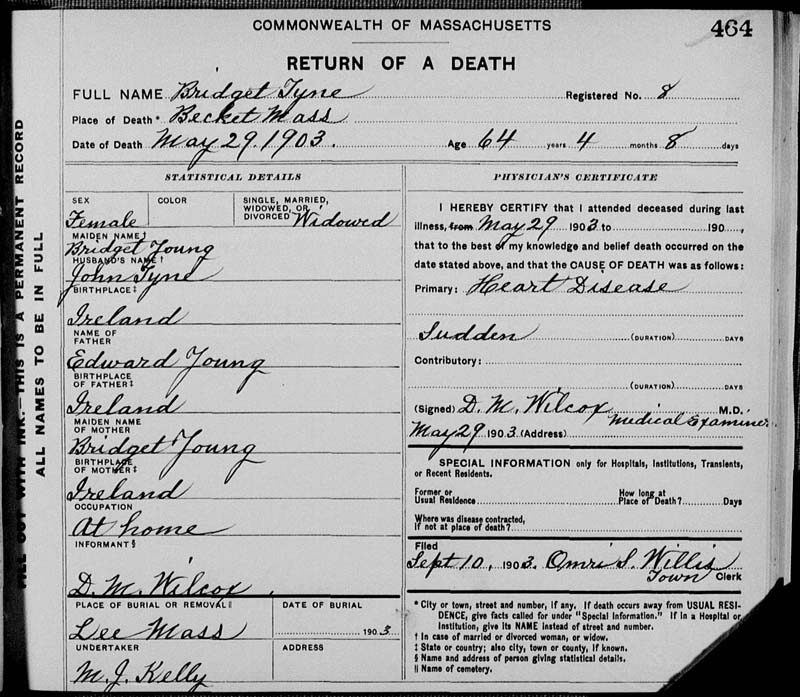 COMMONWEALTH OF MASSACHUSETTS
464
RETURN OF A DEATH
FULL NAME Bridget Tyne Registered No. 8
Place of Death* Becket Mass
Date of Death May 29. 1903. Age 64 years 4 months 8 days
STATISTICAL DETAILS
SEX COLOR SINGLE, MARRIED, WIDOWED, OR DIVORCED
Female Widowed
MAIDEN NAME†
Bridget Young
HUSBAND'S NAME†
John Tyne
BIRTHPLACE‡
Ireland
NAME OF FATHER
Edward Young
BIRTHPLACE OF FATHER‡
Ireland
MAIDEN NAME OF MOTHER
Bridget Young
BIRTHPLACE OF MOTHER‡
Ireland
OCCUPATION
At home
INFORMANT§
D. M. Wilcox
PLACE OF BURIAL OR REMOVAL‖ DATE OF BURIAL
Lee Mass 1903
UNDERTAKER ADDRESS
M. J. Kelly
PHYSICIAN'S CERTIFICATE
I HEREBY CERTIFY that I attended deceased during last
illness, from May 29 1903 to 190 ,
that to the best of my knowledge and belief death occurred on the
date stated above, and that the CAUSE OF DEATH was as follows:
Primary: Heart Disease
Sudden (DURATION) DAYS
Contributory:
(DURATION) DAYS
(Signed) D. M. Wilcox M.D.
Medical Examiner
May 29 1903 (Address)
SPECIAL INFORMATION only for Hospitals, Institutions, Transients,
or Recent Residents.
Former or Usual Residence How long at Place of Death? Days
Where was disease contracted,
If not at place of death?
Filed
Sept 10, 1903. Omri S. Willis
Town Clerk
* City or town, street and number, if any. If death occurs away from USUAL RESI-
DENCE, give facts called for under "Special Information." If in a Hospital or
Institution, give its NAME instead of street and number.
† In case of married or divorced woman, or widow.
‡ State or country; also city, town or county, if known.
§ Name and address of person giving statistical details.
‖ Name of cemetery.
FILL OUT WITH INK.—THIS IS A PERMANENT RECORD
ALL NAMES TO BE IN FULL